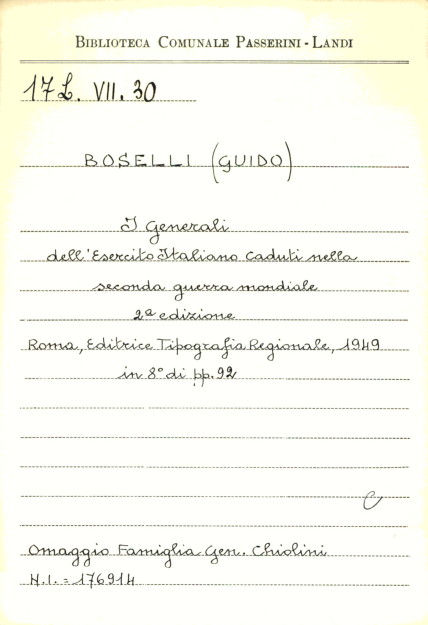 BIBLIOTECA COMUNALE PASSERINI - LANDI
17 L. VII. 30
BOSELLI (GUIDO)
I Generali
dell'Esercito Italiano Caduti nella
seconda guerra mondiale
2ª edizione
Roma, Editrice Tipografia Regionale, 1949
in 8° di pp. 92
C
Omaggio Famiglia Gen. Chiolini
N.I. = 176914